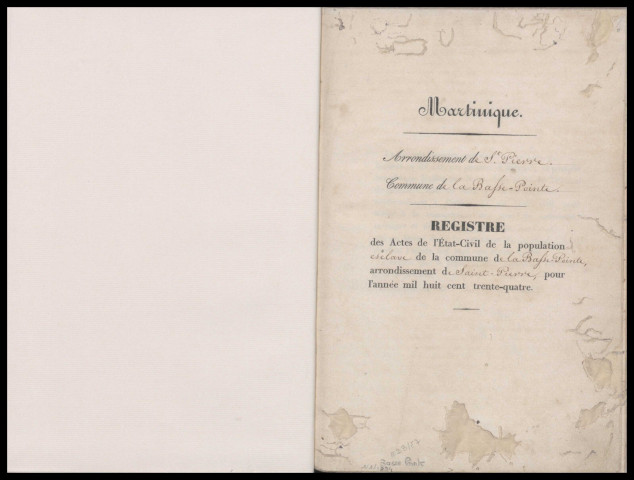 Martinique.
Arrondissement de St. Pierre.
Commune de la Basse-Pointe.
REGISTRE
des Actes de l'État-Civil de la population
esclave de la commune de la Basse-Pointe,
arrondissement de Saint-Pierre, pour
l'année mil huit cent trente-quatre.
Basse Pointe